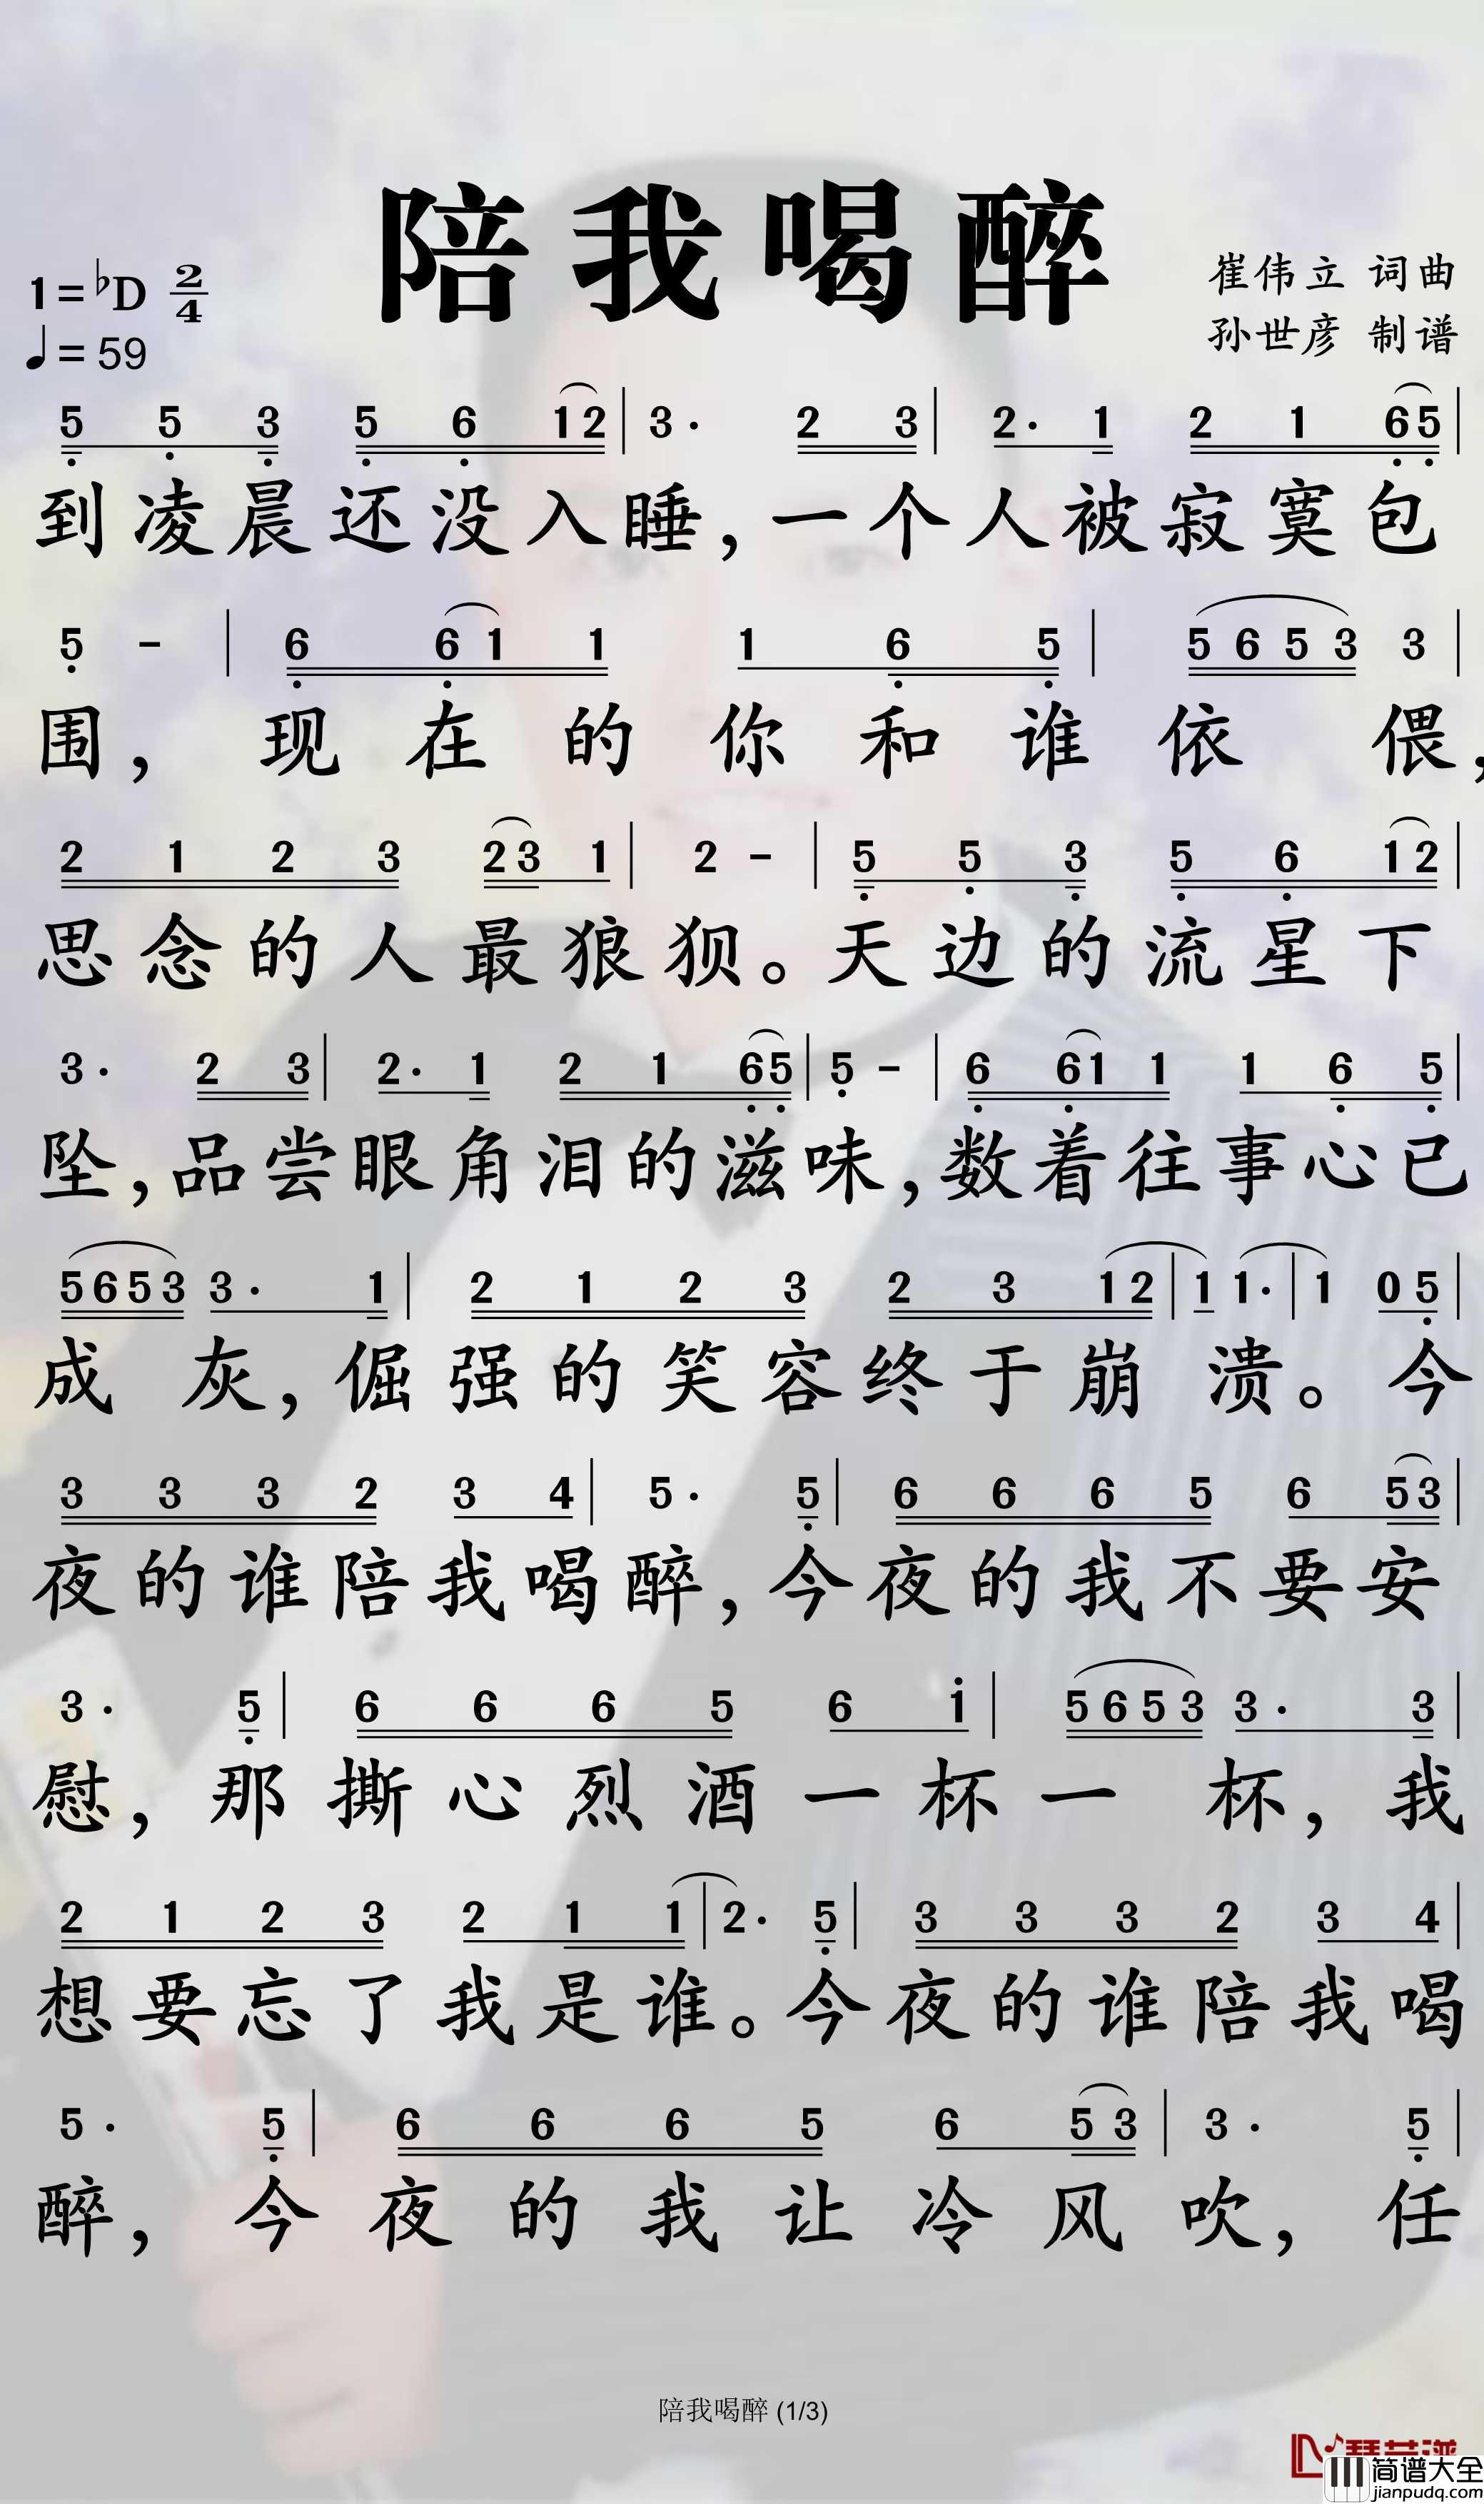 陪我喝醉
1=♭D 2/4
♩=59
崔伟立 词曲
孙世彦 制谱
5 5 3 5 6 12 | 3· 2 3 | 2· 1 2 1 65 |
到凌晨还没入睡，一个人被寂寞包
5 - | 6 6 1 1 1 6 5 | 5 6 5 3 3 |
围，现在的你和谁依偎，
2 1 2 3 23 1 | 2 - | 5 5 3 5 6 12 |
思念的人最狼狈。天边的流星下
3· 2 3 | 2· 1 2 1 65 | 5 - | 6 61 1 1 6 5 |
坠，品尝眼角泪的滋味，数着往事心已
5653 3· 1 | 2 1 2 3 2 3 12 | 1 1· | 1 0 5 |
成灰，倔强的笑容终于崩溃。今
3 3 3 2 3 4 | 5· 5 | 6 6 6 5 6 53 |
夜的谁陪我喝醉，今夜的我不要安
3· 5 | 6 6 6 5 6 i | 5653 3· 3 |
慰，那撕心烈酒一杯一杯，我
2 1 2 3 2 1 1 | 2· 5 | 3 3 3 2 3 4 |
想要忘了我是谁。今夜的谁陪我喝
5· 5 | 6 6 6 5 6 5 3 | 3· 5 |
醉，今夜的我让冷风吹，任
陪我喝醉 (1/3)
简谱大全
jianpudq.com